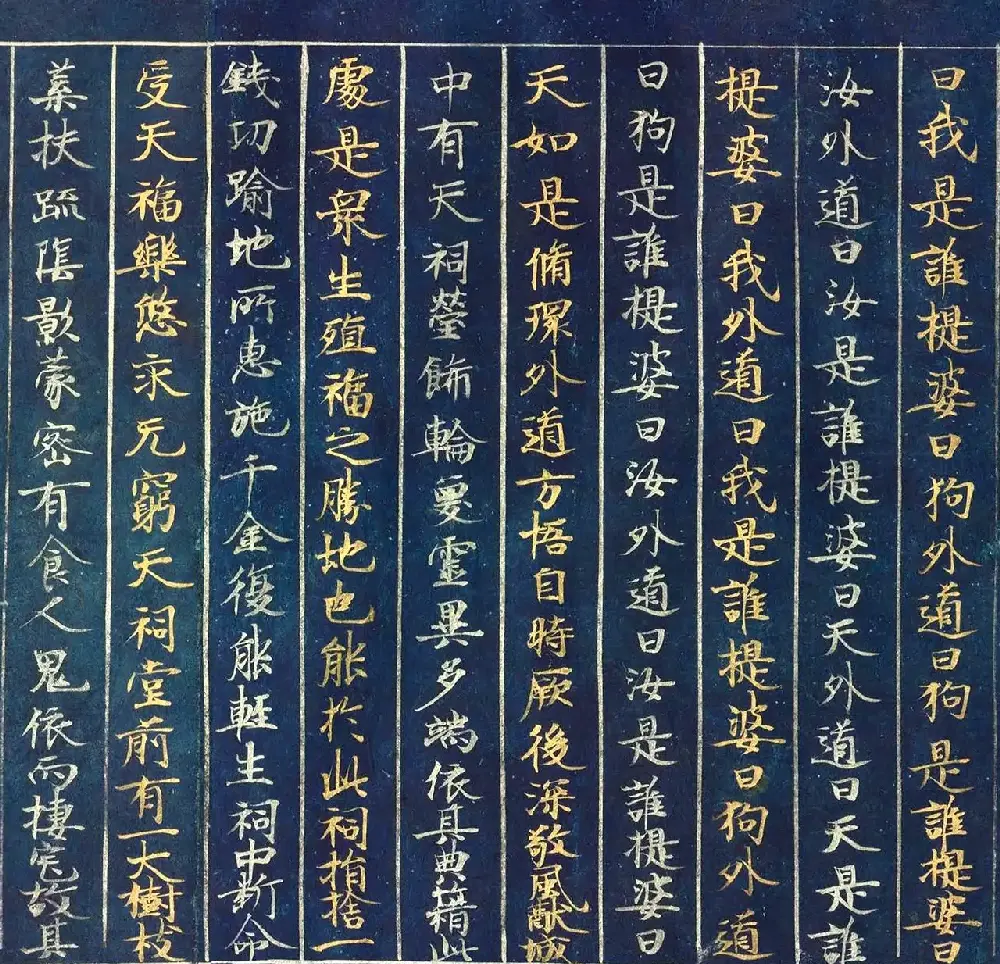 曰我是誰提婆曰狗外道曰狗是誰提婆曰
汝外道曰汝是誰提婆曰天外道曰天是誰
提婆曰我外道曰我是誰提婆曰狗外道
曰狗是誰提婆曰汝外道曰汝是誰提婆曰
天如是脩環外道方悟自時厥後深敬風猷城
中有天祠瑩飾輪奐靈異多端依其典籍此
處是衆生殖福之勝地也能於此祠捐捨一
錢功踰地所惠施千金復能輕生祠中斷命
受天福樂悠永无窮天祠堂前有一大樹枝
葉扶疏蔭影蒙密有食人鬼依而棲宅故其